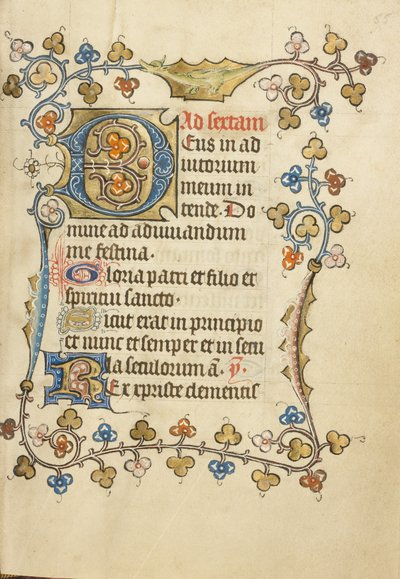 55
Ad sextam
Deus in ad
iutorium
meum in
tende. Do
mine ad adiuuandum
me festina.
Gloria patri et filio et
spiritui sancto.
Sicut erat in principio
et nunc et semper et in secu
la seculorum a. p.
Rex xpriste clementis